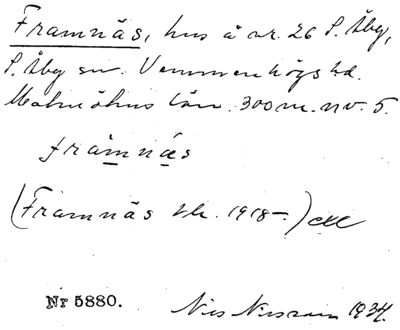 Framnäs, hus å nr. 26 S. Åby,
S. Åby sn. Vemmenhögs hd.
Malmöhus län. 300 m. nv. 5.
framnäs
(Framnäs tlr. 1918-.)
Nr 5880.
Nils 1934.